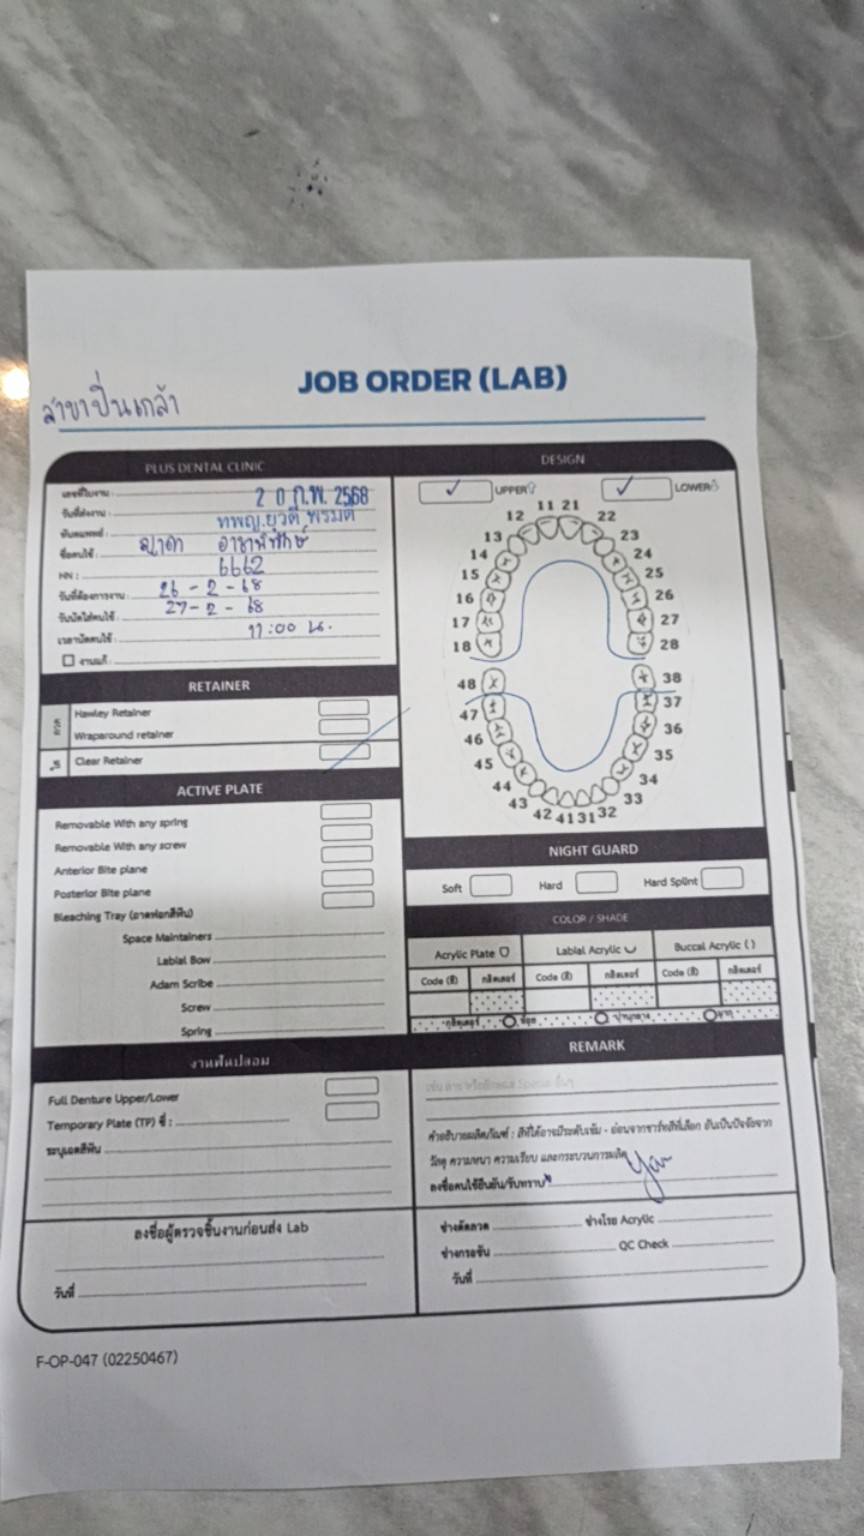 JOB ORDER (LAB)
สาขาปิ่นเกล้า
PLUS DENTAL CLINIC
เลขที่ใบงาน :
วันที่ส่งงาน : 2 0 ก.พ. 2568
ทันตแพทย์ : ทพญ.ยุวดี พรมดี
ชื่อคนไข้ :
HN : 6662
วันที่ต้องการงาน : 26 - 2 - 68
วันนัดใส่คนไข้ : 27 - 2 - 68
เวลานัดคนไข้ : 11:00 น.
งานแก้ :
RETAINER
ลวด
Hawley Retainer
Wraparound retainer
ใส
Clear Retainer
ACTIVE PLATE
Removable With any spring
Removable With any screw
Anterior Bite plane
Posterior Bite plane
Bleaching Tray (ถาดฟอกสีฟัน)
Space Maintainers
Labial Bow
Adam Scribe
Screw
Spring
งานฟันปลอม
Full Denture Upper/Lower
Temporary Plate (TP) ซี่ :
ระบุเฉดสีฟัน
ลงชื่อผู้ตรวจชิ้นงานก่อนส่ง Lab
วันที่
DESIGN
✓ UPPER ✓ LOWER
11 21
12 22
13 23
14 24
15 25
16 26
17 27
18 28
48 38
47 37
46 36
45 35
44 34
43 33
42 41 31 32
NIGHT GUARD
Soft Hard Hard Splint
COLOR / SHADE
Acrylic Plate Labial Acrylic Buccal Acrylic ( )
Code (สี) กลิตเตอร์ Code (สี) กลิตเตอร์ Code (สี) กลิตเตอร์
กลิตเตอร์ น้อย ปานกลาง มาก
REMARK
คำอธิบายผลิตภัณฑ์ : สีที่ได้อาจมีระดับเข้ม - อ่อนจากชาร์ทสีที่เลือก อันเป็นปัจจัยจาก
วัสดุ ความหนา ความเรียบ และกระบวนการผลิต
ลงชื่อคนไข้ยืนยัน/รับทราบ
ช่างดัดลวด ช่างโรย Acrylic
ช่างกรอขัด QC Check
วันที่
F-OP-047 (02250467)